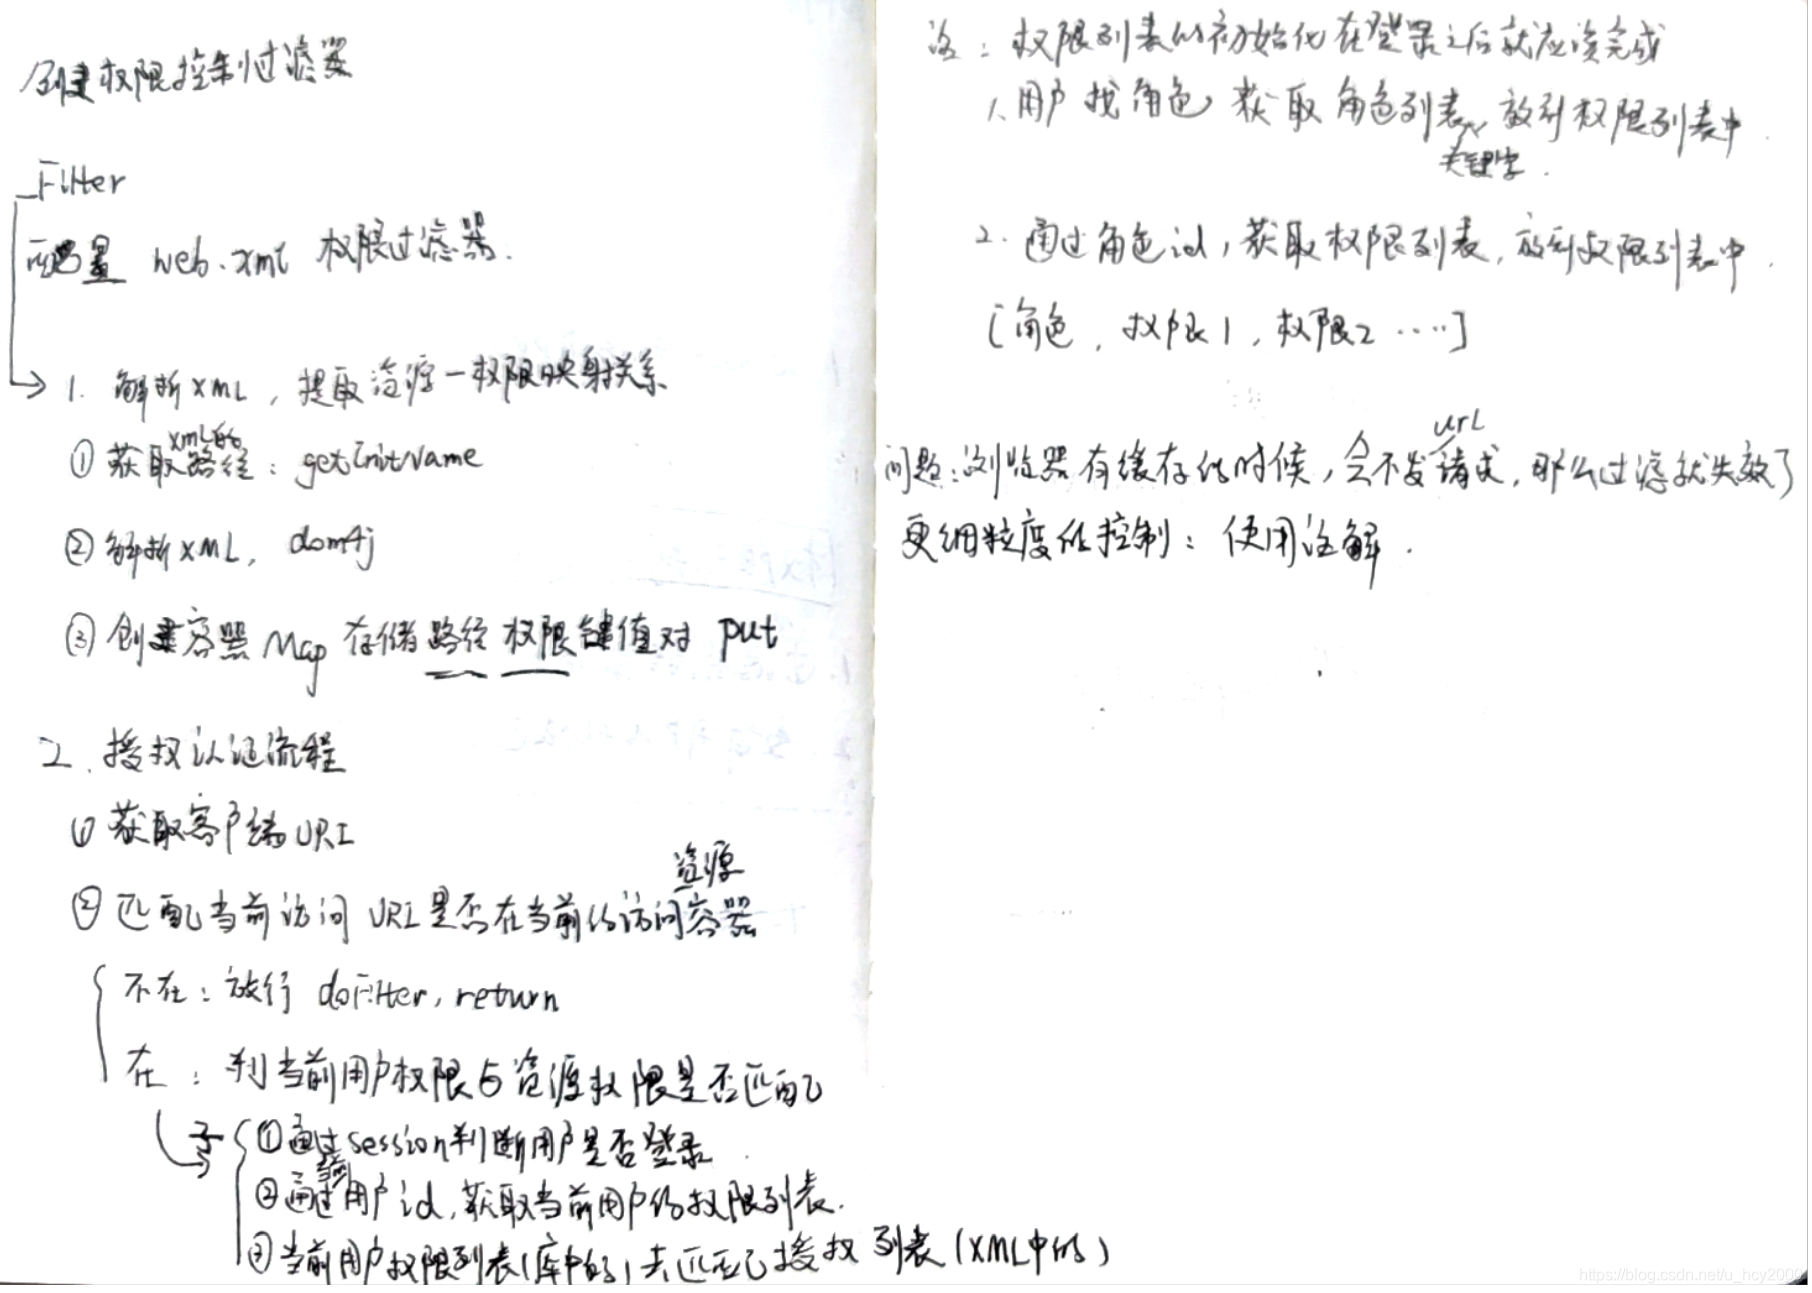 创建权限控制过滤器
Filter
配置 web.xml 权限过滤器.
1. 解析XML，提取资源-权限映射关系
xml的
① 获取路径：getInitName
② 解析XML，dom4j
③ 创建容器Map 存储路径 权限键值对 put
2. 授权认证流程
① 获取客户端URI
资源
② 匹配当前访问URI是否在当前的访问容器
不在：放行 doFilter，return
在：判当前用户权限与资源权限是否匹配
① 通过session判断用户是否登录.
② 通过用户id，获取当前用户的权限列表.
③ 当前用户权限列表(库中的)去匹配授权列表(XML中的)
注：权限列表的初始化在登录之后就应该完成
1. 用户找角色，获取角色列表，放到权限列表中.
关键字.
2. 通过角色id，获取权限列表，放到权限列表中.
[角色，权限1，权限2 ……]
url
问题：浏览器有缓存的时候，会不发请求，那么过滤就失效了
更细粒度的控制：使用注解.
https://blog.csdn.net/u_hcy2000